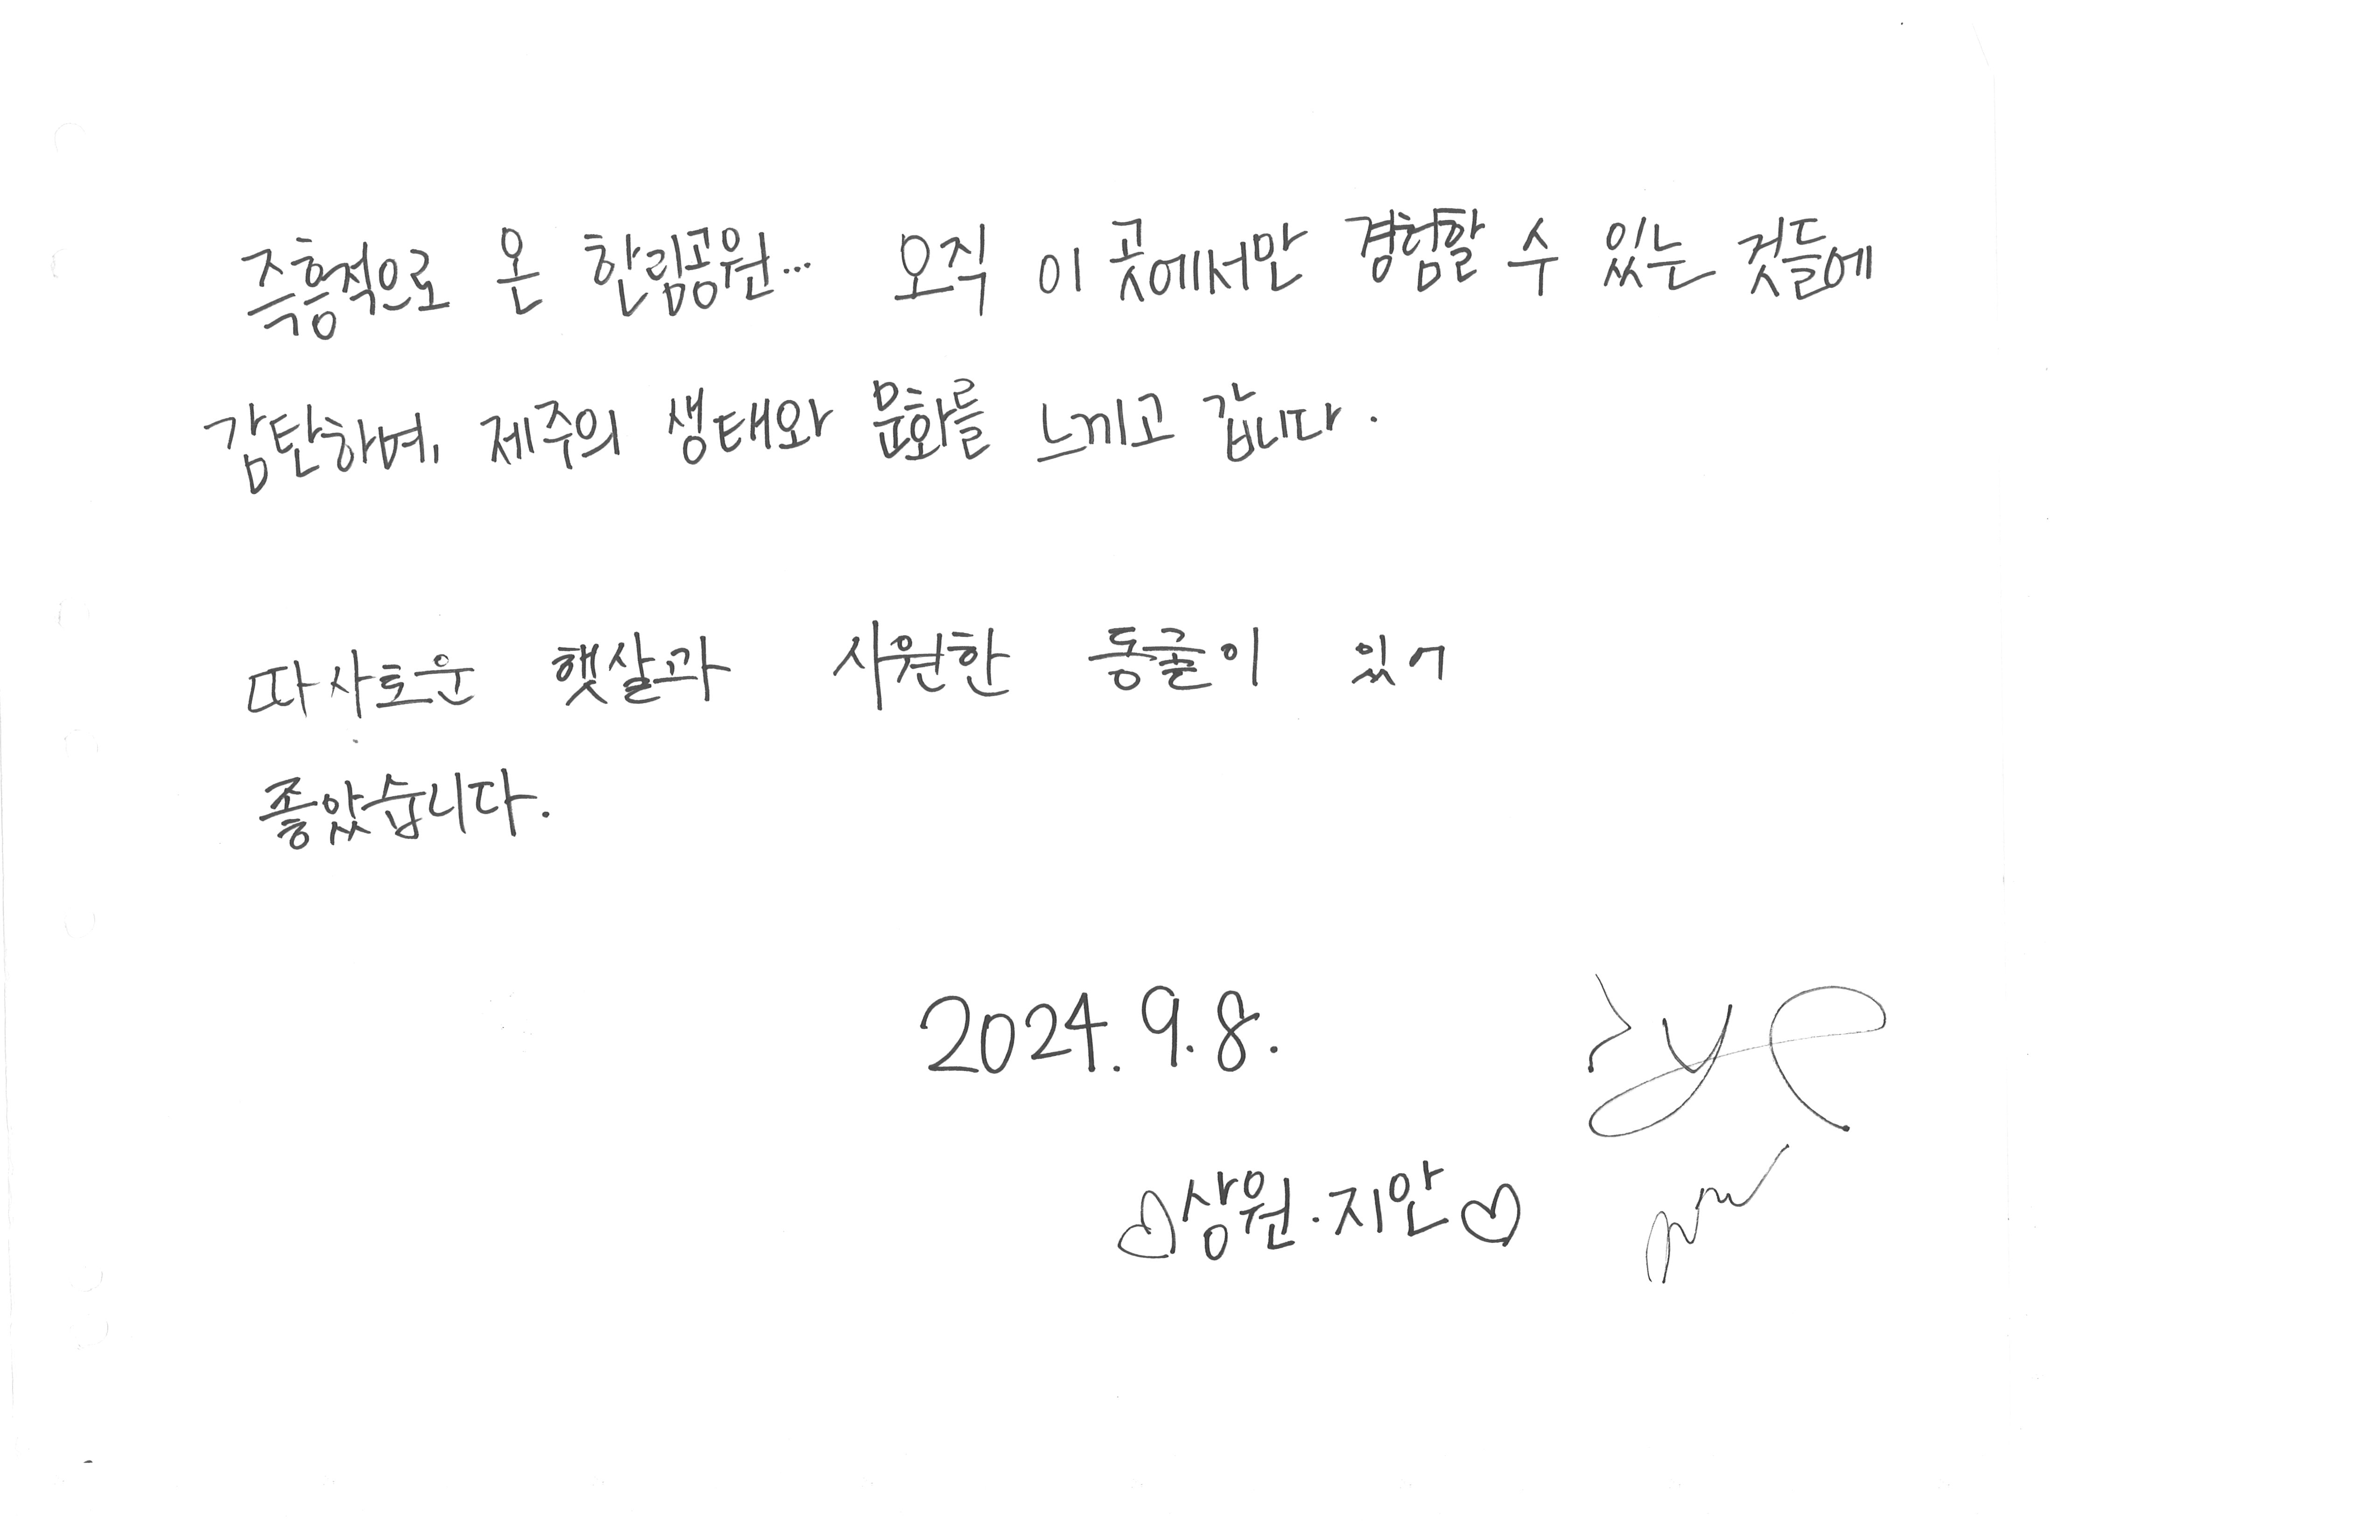 즉흥적으로 온 한림공원... 오직 이 곳에서만 경험할 수 있는 것들에
감탄하며, 제주의 생태와 문화를 느끼고 갑니다.
따사로운 햇살과 시원한 동굴이 있어
좋았습니다.
2024. 9. 8.
♡상원·지안♡